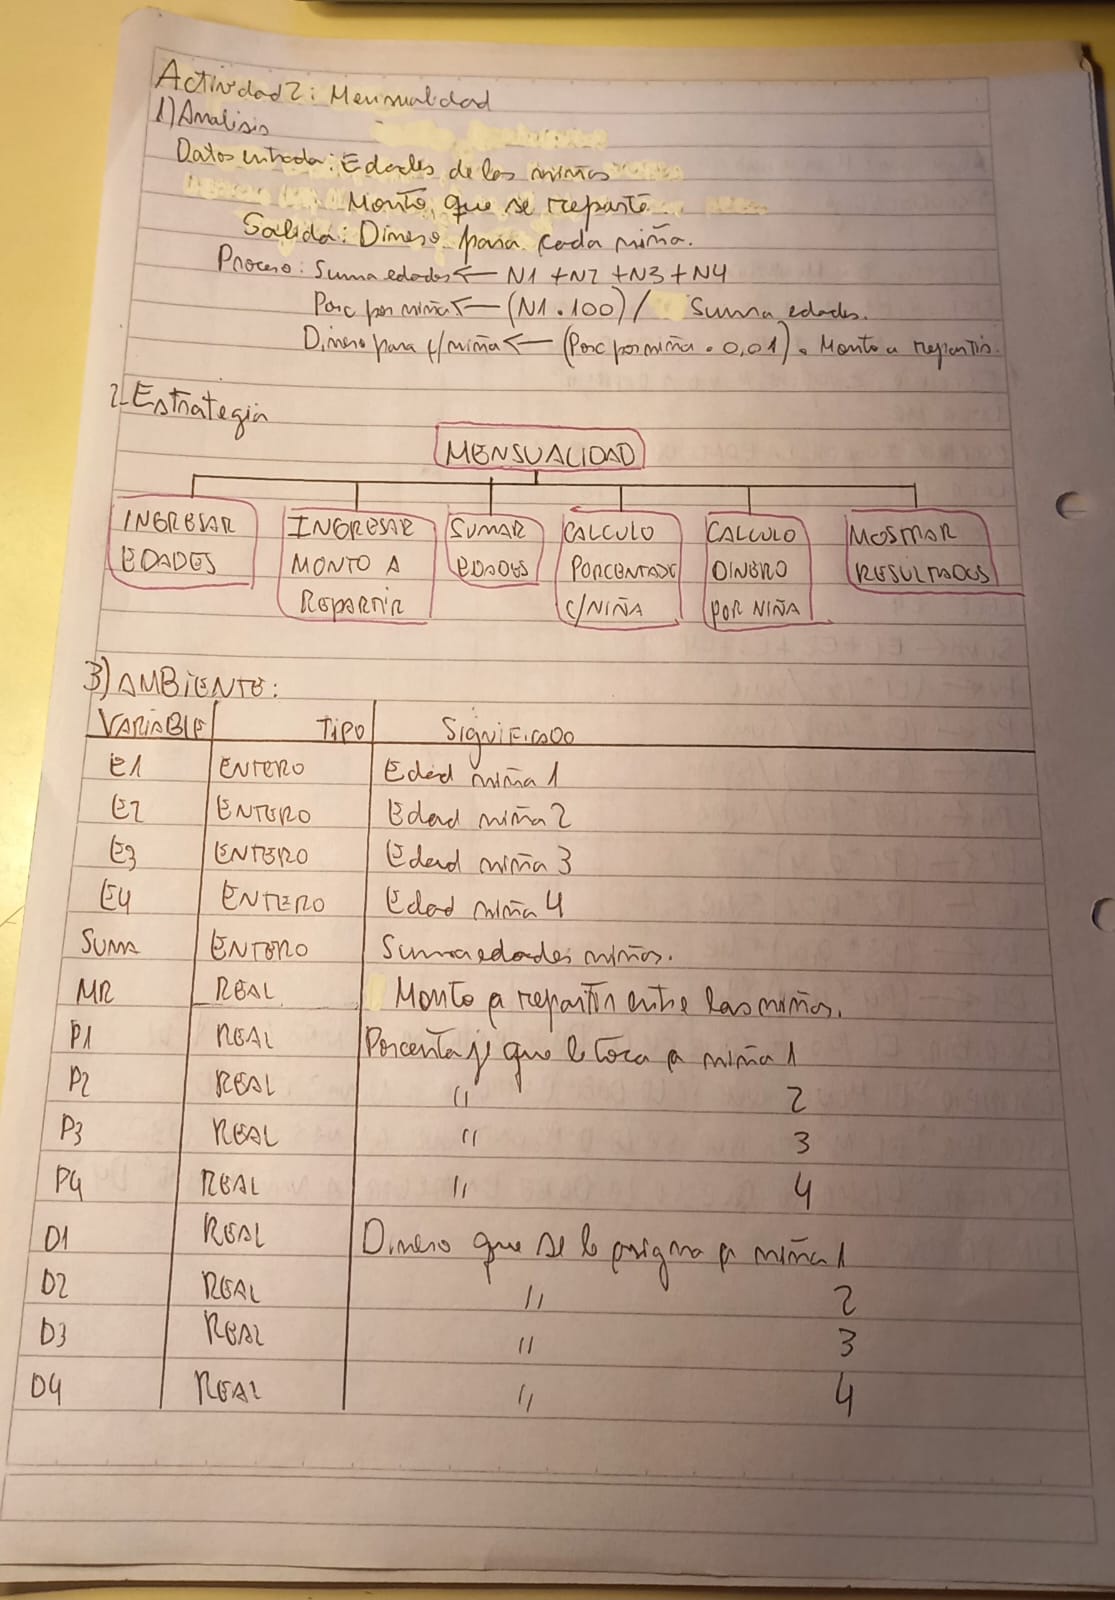 Actividad 2: Mensualidad
1) Analisis
Datos entrada: Edades de las niñas
Monto que se reparte.
Salida: Dinero para cada niña.
Proceso: Suma edades ← N1 + N2 + N3 + N4
Porc por niña ← (N1 . 100) / Suma edades.
Dinero para c/niña ← (Porc por niña . 0,01) . Monto a repartir.
2-Estrategia
MENSUALIDAD
INGRESAR EDADES
INGRESAR MONTO A REPARTIR
SUMAR EDADES
CALCULO PORCENTAJE C/NIÑA
CALCULO DINERO POR NIÑA
MOSTRAR RESULTADOS
3) AMBIENTE:
VARIABLE TIPO SIGNIFICADO
E1 ENTERO Edad niña 1
E2 ENTERO Edad niña 2
E3 ENTERO Edad niña 3
E4 ENTERO Edad niña 4
SUMA ENTERO Suma edades niñas.
MR REAL Monto a repartir entre las niñas.
P1 REAL Porcentaje que le toca a niña 1
P2 REAL " 2
P3 REAL " 3
P4 REAL " 4
D1 REAL Dinero que se le asigna a niña 1
D2 REAL " 2
D3 REAL " 3
D4 REAL " 4